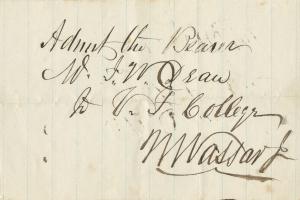 Admit the Bearer
Mr. J. W. Dean
to V. F. College
M Vassar Jr